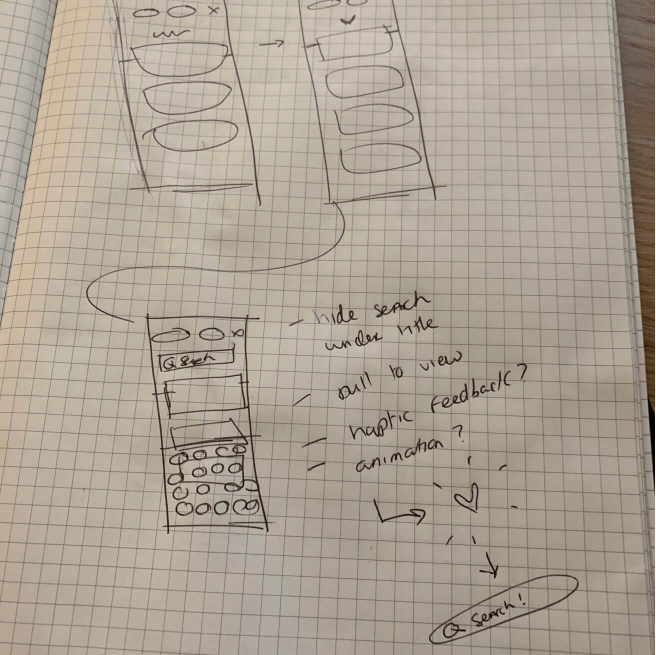 x
Q Search
x
- hide search
under title
- pull to view
- haptic feedback?
- animation?
Q Search!